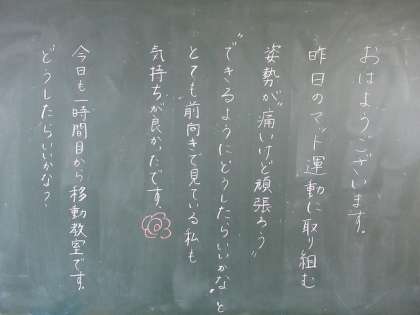 おはようございます。
昨日のマット運動に取り組む
姿勢が“痛いけど頑張ろう”
“できるようにどうしたらいいかな”と
とても前向きで見ている私も
気持ちが良かったです。
今日も一時間目から移動教室です。
どうしたらいいかな？